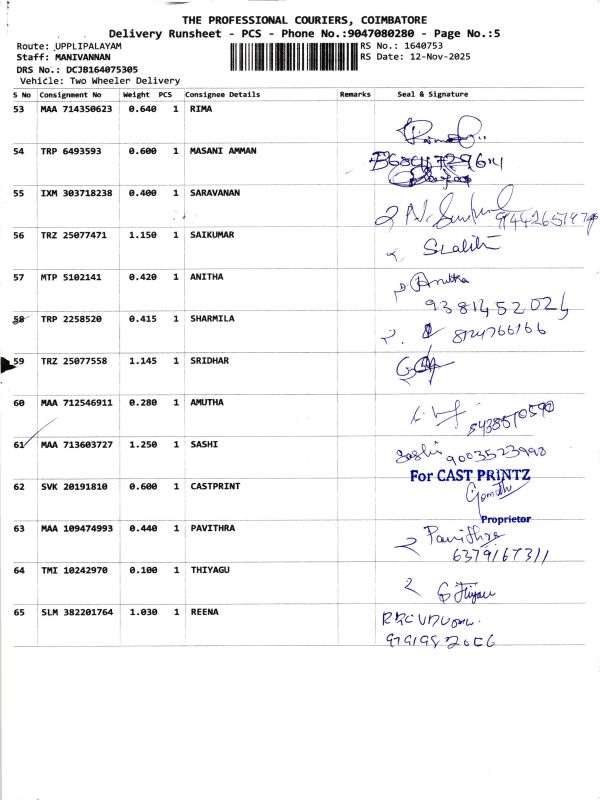 THE PROFESSIONAL COURIERS, COIMBATORE
Delivery Runsheet - PCS - Phone No.:9047080280 - Page No.:5
Route: UPPLIPALAYAM
Staff: MANIVANNAN
DRS No.: DCJB164075305
Vehicle: Two Wheeler Delivery
RS No.: 1640753
RS Date: 12-Nov-2025
S No Consignment No Weight PCS Consignee Details Remarks Seal & Signature
53 MAA 714350623 0.640 1 RIMA
54 TRP 6493593 0.600 1 MASANI AMMAN
55 IXM 303718238 0.400 1 SARAVANAN
56 TRZ 25077471 1.150 1 SAIKUMAR
57 MTP 5102141 0.420 1 ANITHA
Anitha
58 TRP 2258520 0.415 1 SHARMILA
8124766166
59 TRZ 25077558 1.145 1 SRIDHAR
60 MAA 712546911 0.280 1 AMUTHA
61 MAA 713603727 1.250 1 SASHI
Sashi 9003523998
62 SVK 20191810 0.600 1 CASTPRINT
For CAST PRINTZ
Gomathi
Proprietor
63 MAA 109474993 0.440 1 PAVITHRA
Pavithra
6379167311
64 TMI 10242970 0.100 1 THIYAGU
65 SLM 382201764 1.030 1 REENA